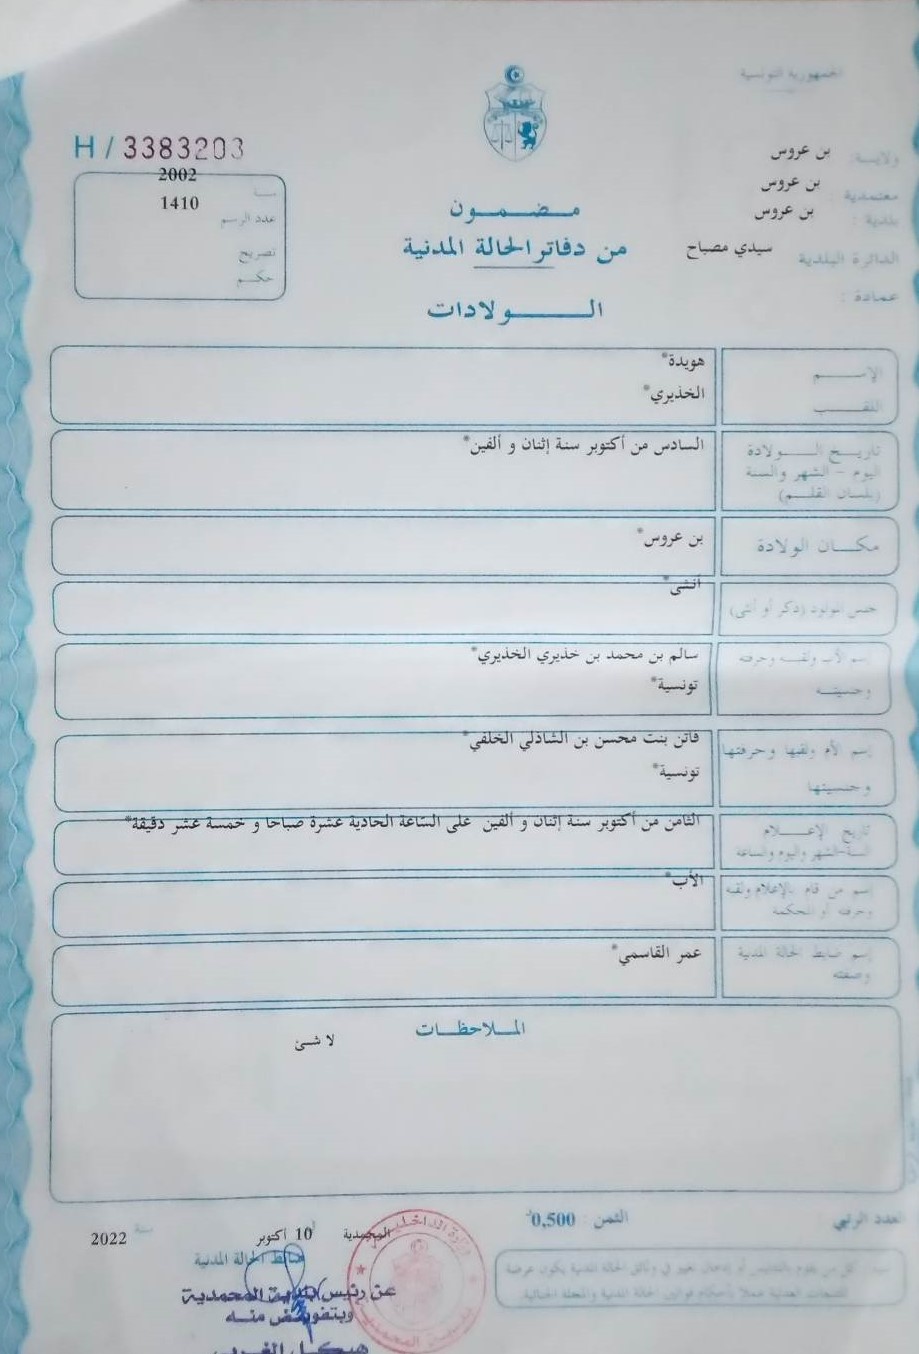 الجمهورية التونسية
ولاية: بن عروس
معتمدية: بن عروس
بلدية: بن عروس
الدائرة البلدية سيدي مصباح
عمادة:
H / 3383203
سنة 2002
عدد الرسم 1410
تصريح
حكم
مضمون
من دفاتر الحالة المدنية
الولادات
الإسم هويدة*
اللقب الخذيري*
تاريخ الولادة السادس من أكتوبر سنة إثنان و ألفين*
اليوم - الشهر والسنة
(بلسان القلم)
مكان الولادة بن عروس*
جنس المولود (ذكر أو أنثى) أنثى*
إسم الأب ولقبه وحرفته سالم بن محمد بن خذيري الخذيري*
وجنسيته تونسية*
إسم الأم ولقبها وحرفتها فاتن بنت محسن بن الشاذلي الخلفي*
وجنسيتها تونسية*
تاريخ الإعلام الثامن من أكتوبر سنة إثنان و ألفين على الساعة الحادية عشرة صباحا و خمسة عشر دقيقة*
السنة-الشهر واليوم والساعة
إسم من قام بالإعلام ولقبه الأب*
وحرفته أو المحكمة
إسم ضابط الحالة المدنية عمر القاسمي*
وصفته
الملاحظات
لا شئ
العدد الرتبي
الثمن: 0,500د
المحمدية 10 أكتوبر سنة 2022
ضابط الحالة المدنية
عن رئيس بلدية المحمدية
وبتفويض منه
هيكل الغربي
وزارة الداخلية
بلدية المحمدية
كل من يقوم بالتدليس أو إدخال تغيير في وثائق الحالة المدنية يكون عرضة
للتتبعات العدلية عملا بأحكام قوانين الحالة المدنية والمجلة الجنائية.